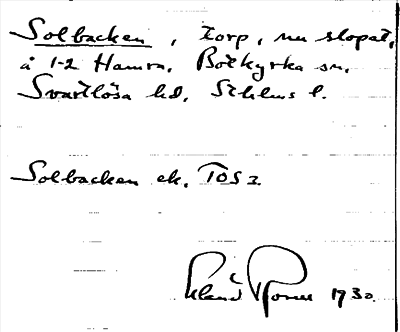 Solbacken, torp, nu slopat,
å 1-2 Hamra, Botkyrka sn,
Svartlösa hd, Sthlms l.
Solbacken ek. TOS 2.
1930.